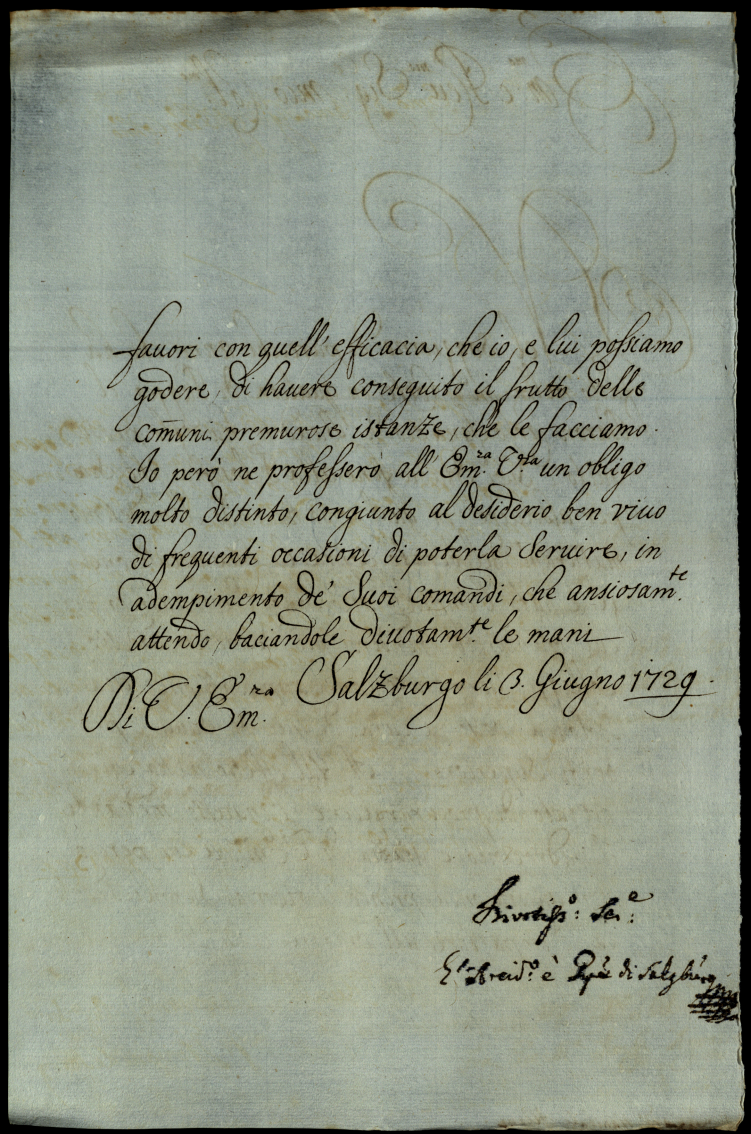 favori con quell' efficacia, che io, e lui possiamo
godere, di havere conseguito il frutto delle
com̄uni premurose istanze, che le facciamo.
Io però ne professerò all' Em.ʳᵃ V.ʳᵃ un obligo
molto distinto, congiunto al desiderio ben vivo
di frequenti occasioni di poterla servire, in
adempimento de' Suoi comandi, che ansiosam.ᵗᵉ
attendo, baciandole divotam.ᵗᵉ le mani
Di V. Em.ʳᵃ Salzburgo li 3. Giugno 1729.
Divotiss.º: Se.ᵉ:
L'Arcid.º è Pṕe di Salzburg